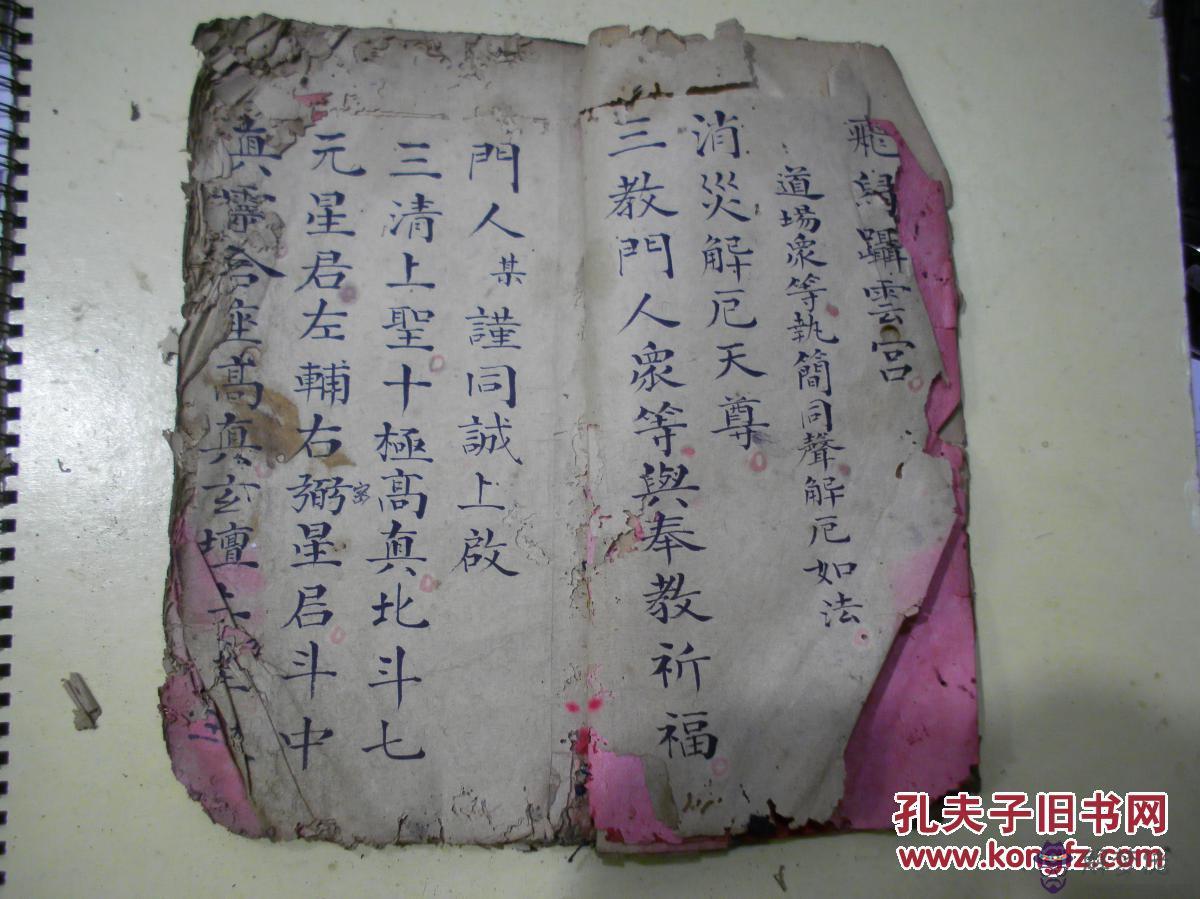 飛舄躡雲宮
道場衆等執簡同聲解厄如法
消災解厄天尊
三教門人衆等與奉教祈福
門人某謹同誠上啟
三清上聖十極高真北斗七
元星君左輔右弼星君斗中
真合座高真玄壇上聖
孔夫子旧书网
www.kongfz.com